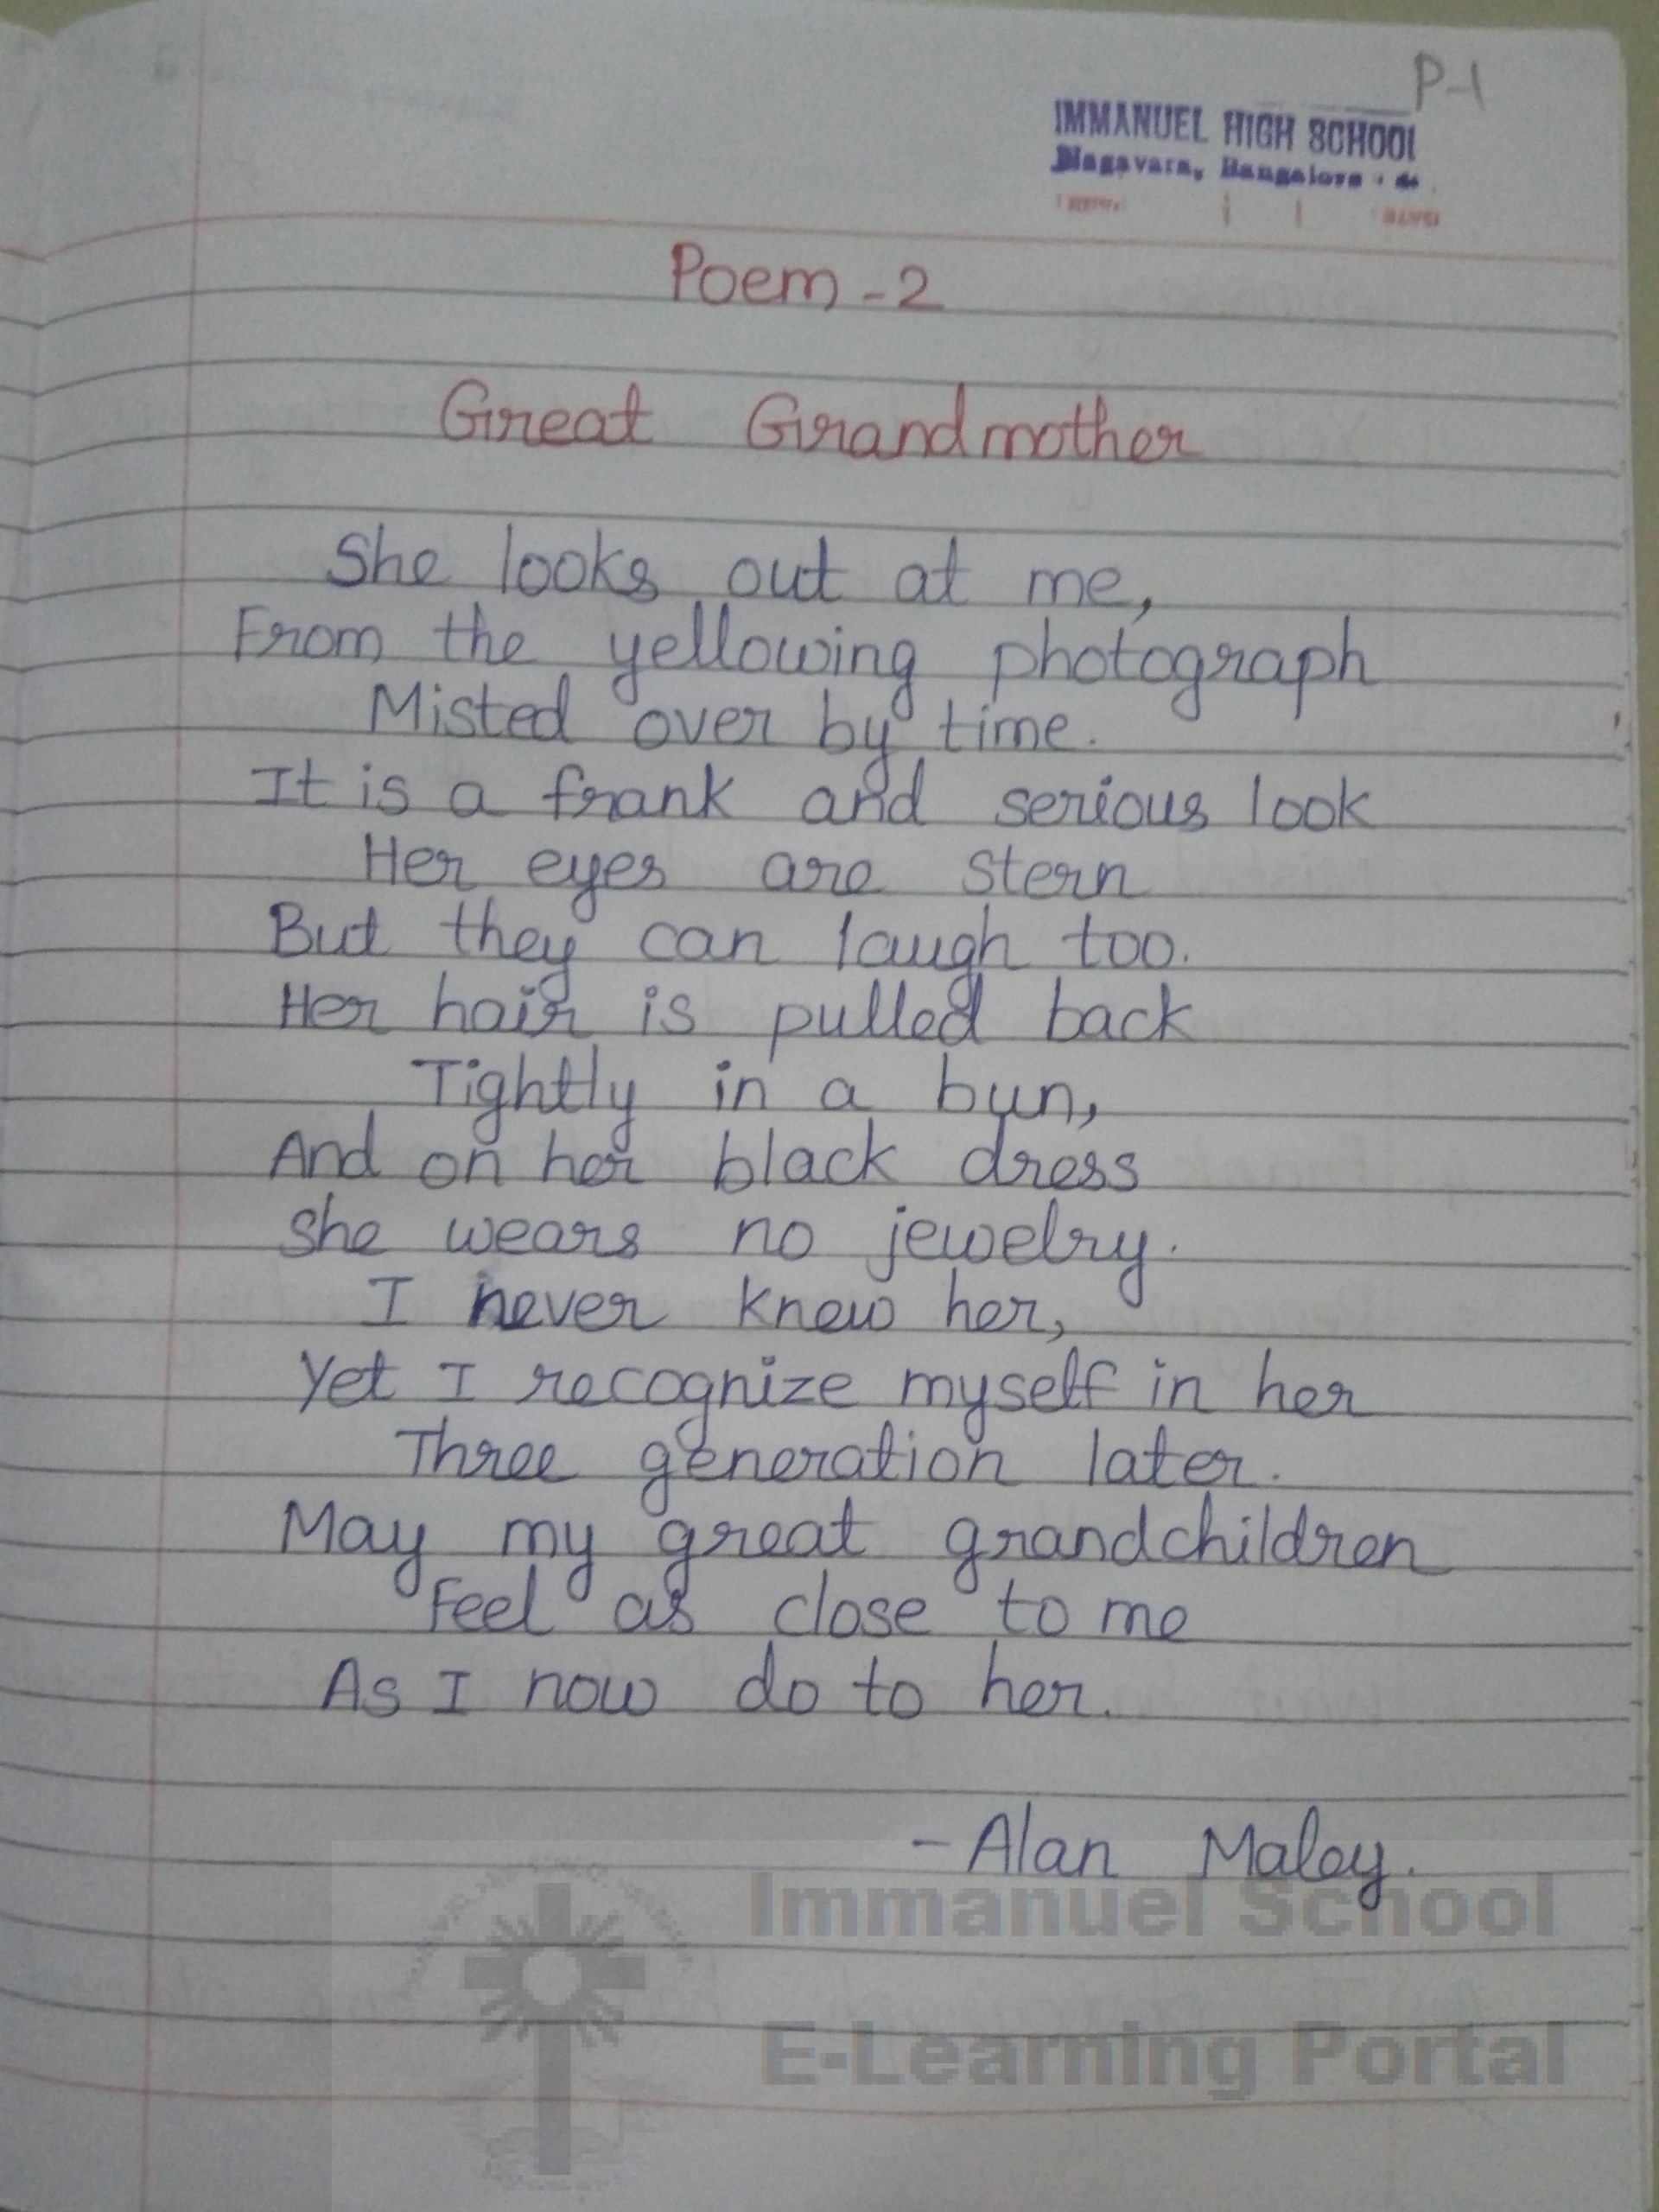 P-1
IMMANUEL HIGH SCHOOL
Poem - 2
Great Grandmother
She looks out at me,
From the yellowing photograph
Misted over by time.
It is a frank and serious look
Her eyes are stern
But they can laugh too.
Her hair is pulled back
Tightly in a bun,
And on her black dress
She wears no jewelry.
I never knew her,
Yet I recognize myself in her
Three generation later.
May my great grandchildren
Feel as close to me
As I now do to her.
- Alan Maley.
Immanuel School
E-Learning Portal